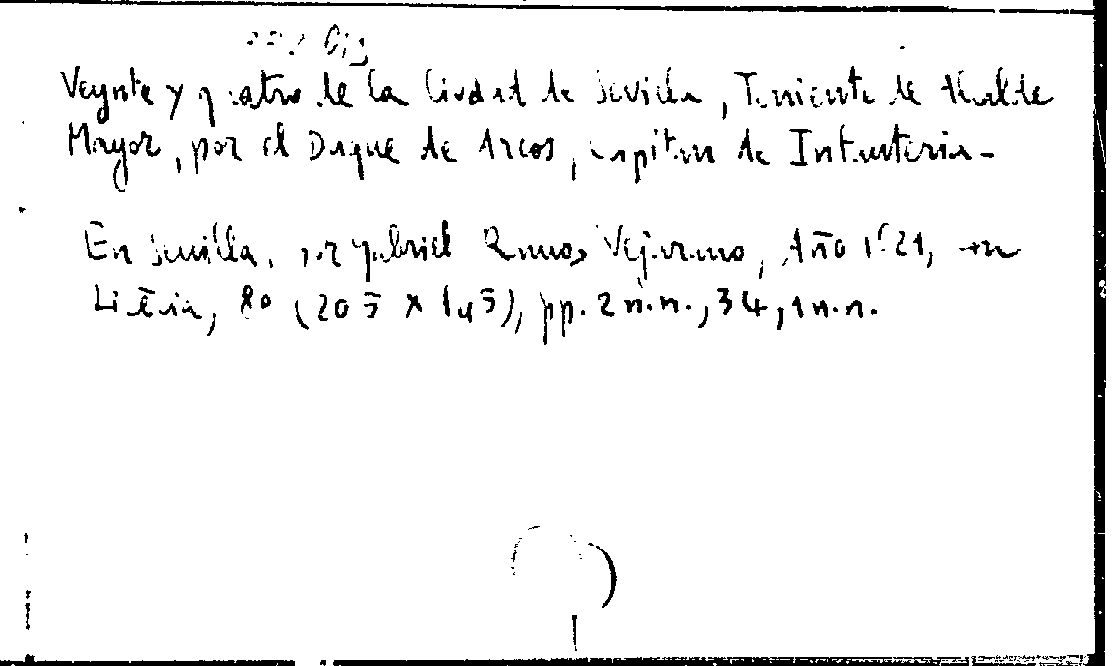 Veynte y quatro de la Ciudad de Sevilla, Teniente de Alcalde
Mayor, por el Duque de Arcos, Capitan de Infanteria-
En Sevilla, por Gabriel Ramos Vejarano, Año 1621, con
8º (205 x 145), pp. 2 n.n., 34, 1 n.n.